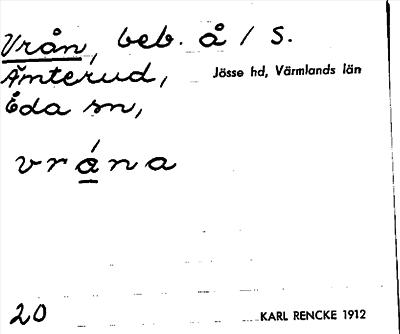 Vrån, beb. å / S.
Ämterud, Jösse hd, Värmlands län
Eda sn,
vrána
20 KARL RENCKE 1912